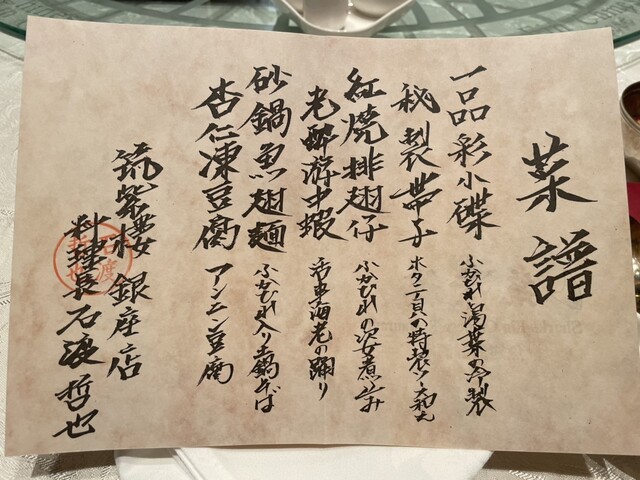 菜譜
一品彩小碟 ふかひれ湯葉の冷製
秘製帯子 ホタテ貝の特製ソース
紅焼排翅仔 ふかひれの姿煮込み
老酔游中蝦 活車海老の踊り
砂鍋魚翅麺 ふかひれ入り土鍋そば
杏仁凍豆腐 アンニン豆腐
筑紫楼 銀座店
料理長 石渡哲也
石渡哲也